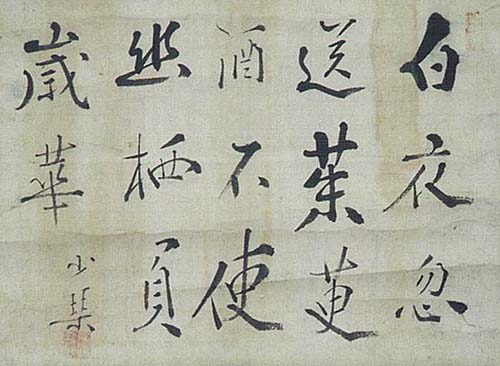 白衣忽
送茱萸
酒不使
幽栖負
嵗華